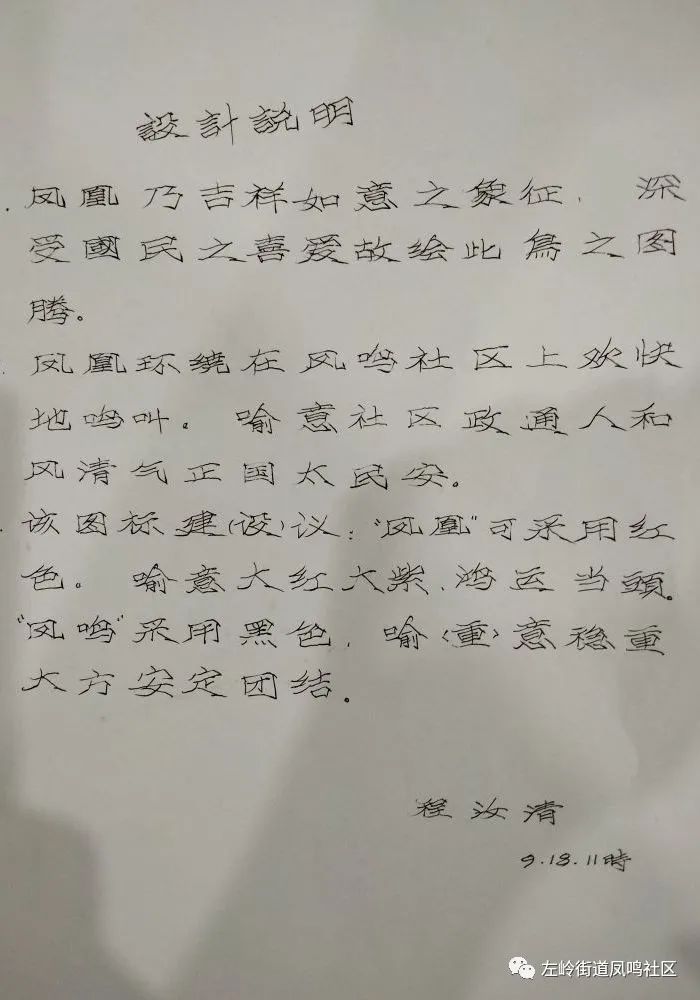 設計説明
. 凤凰乃吉祥如意之象征, 深
受國民之喜爱故绘此鳥之图
腾。
. 凤凰环绕在凤鸣社区上欢快
地鸣叫。喻意社区政通人和
风清气正国太民安。
. 该图标建(设)议:"凤凰"可采用红
色。喻意大红大紫、鸿运当頭。
"凤鸣"采用黑色, 喻(重)意稳重
大方安定团结.
程汝清
9.18.11時
左岭街道凤鸣社区